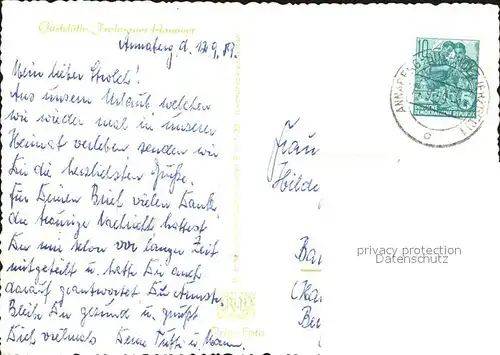 Gaststätte Frohnauer Hammer
Annaberg, d. 12.9.
Mein lieber Strolch!
Aus unserm Urlaub welchen
wir wieder mal in unserer
Heimat verleben senden wir
Dir die herzlichsten Grüße.
Für Deinen Brief vielen Dank,
die traurige Nachricht hattest
Du mir schon vor langer Zeit
mitgeteilt u. hatte Dir auch
darauf geantwortet
Bleibe Du gesund u. grüßt
Dich vielmals Deine u. Mann.
10
DEUTSCHE
DEMOKRATISCHE REPUBLIK
ANNABERG-BUCHHOLZ
Frau
Hilde
privacy protection
Datenschutz